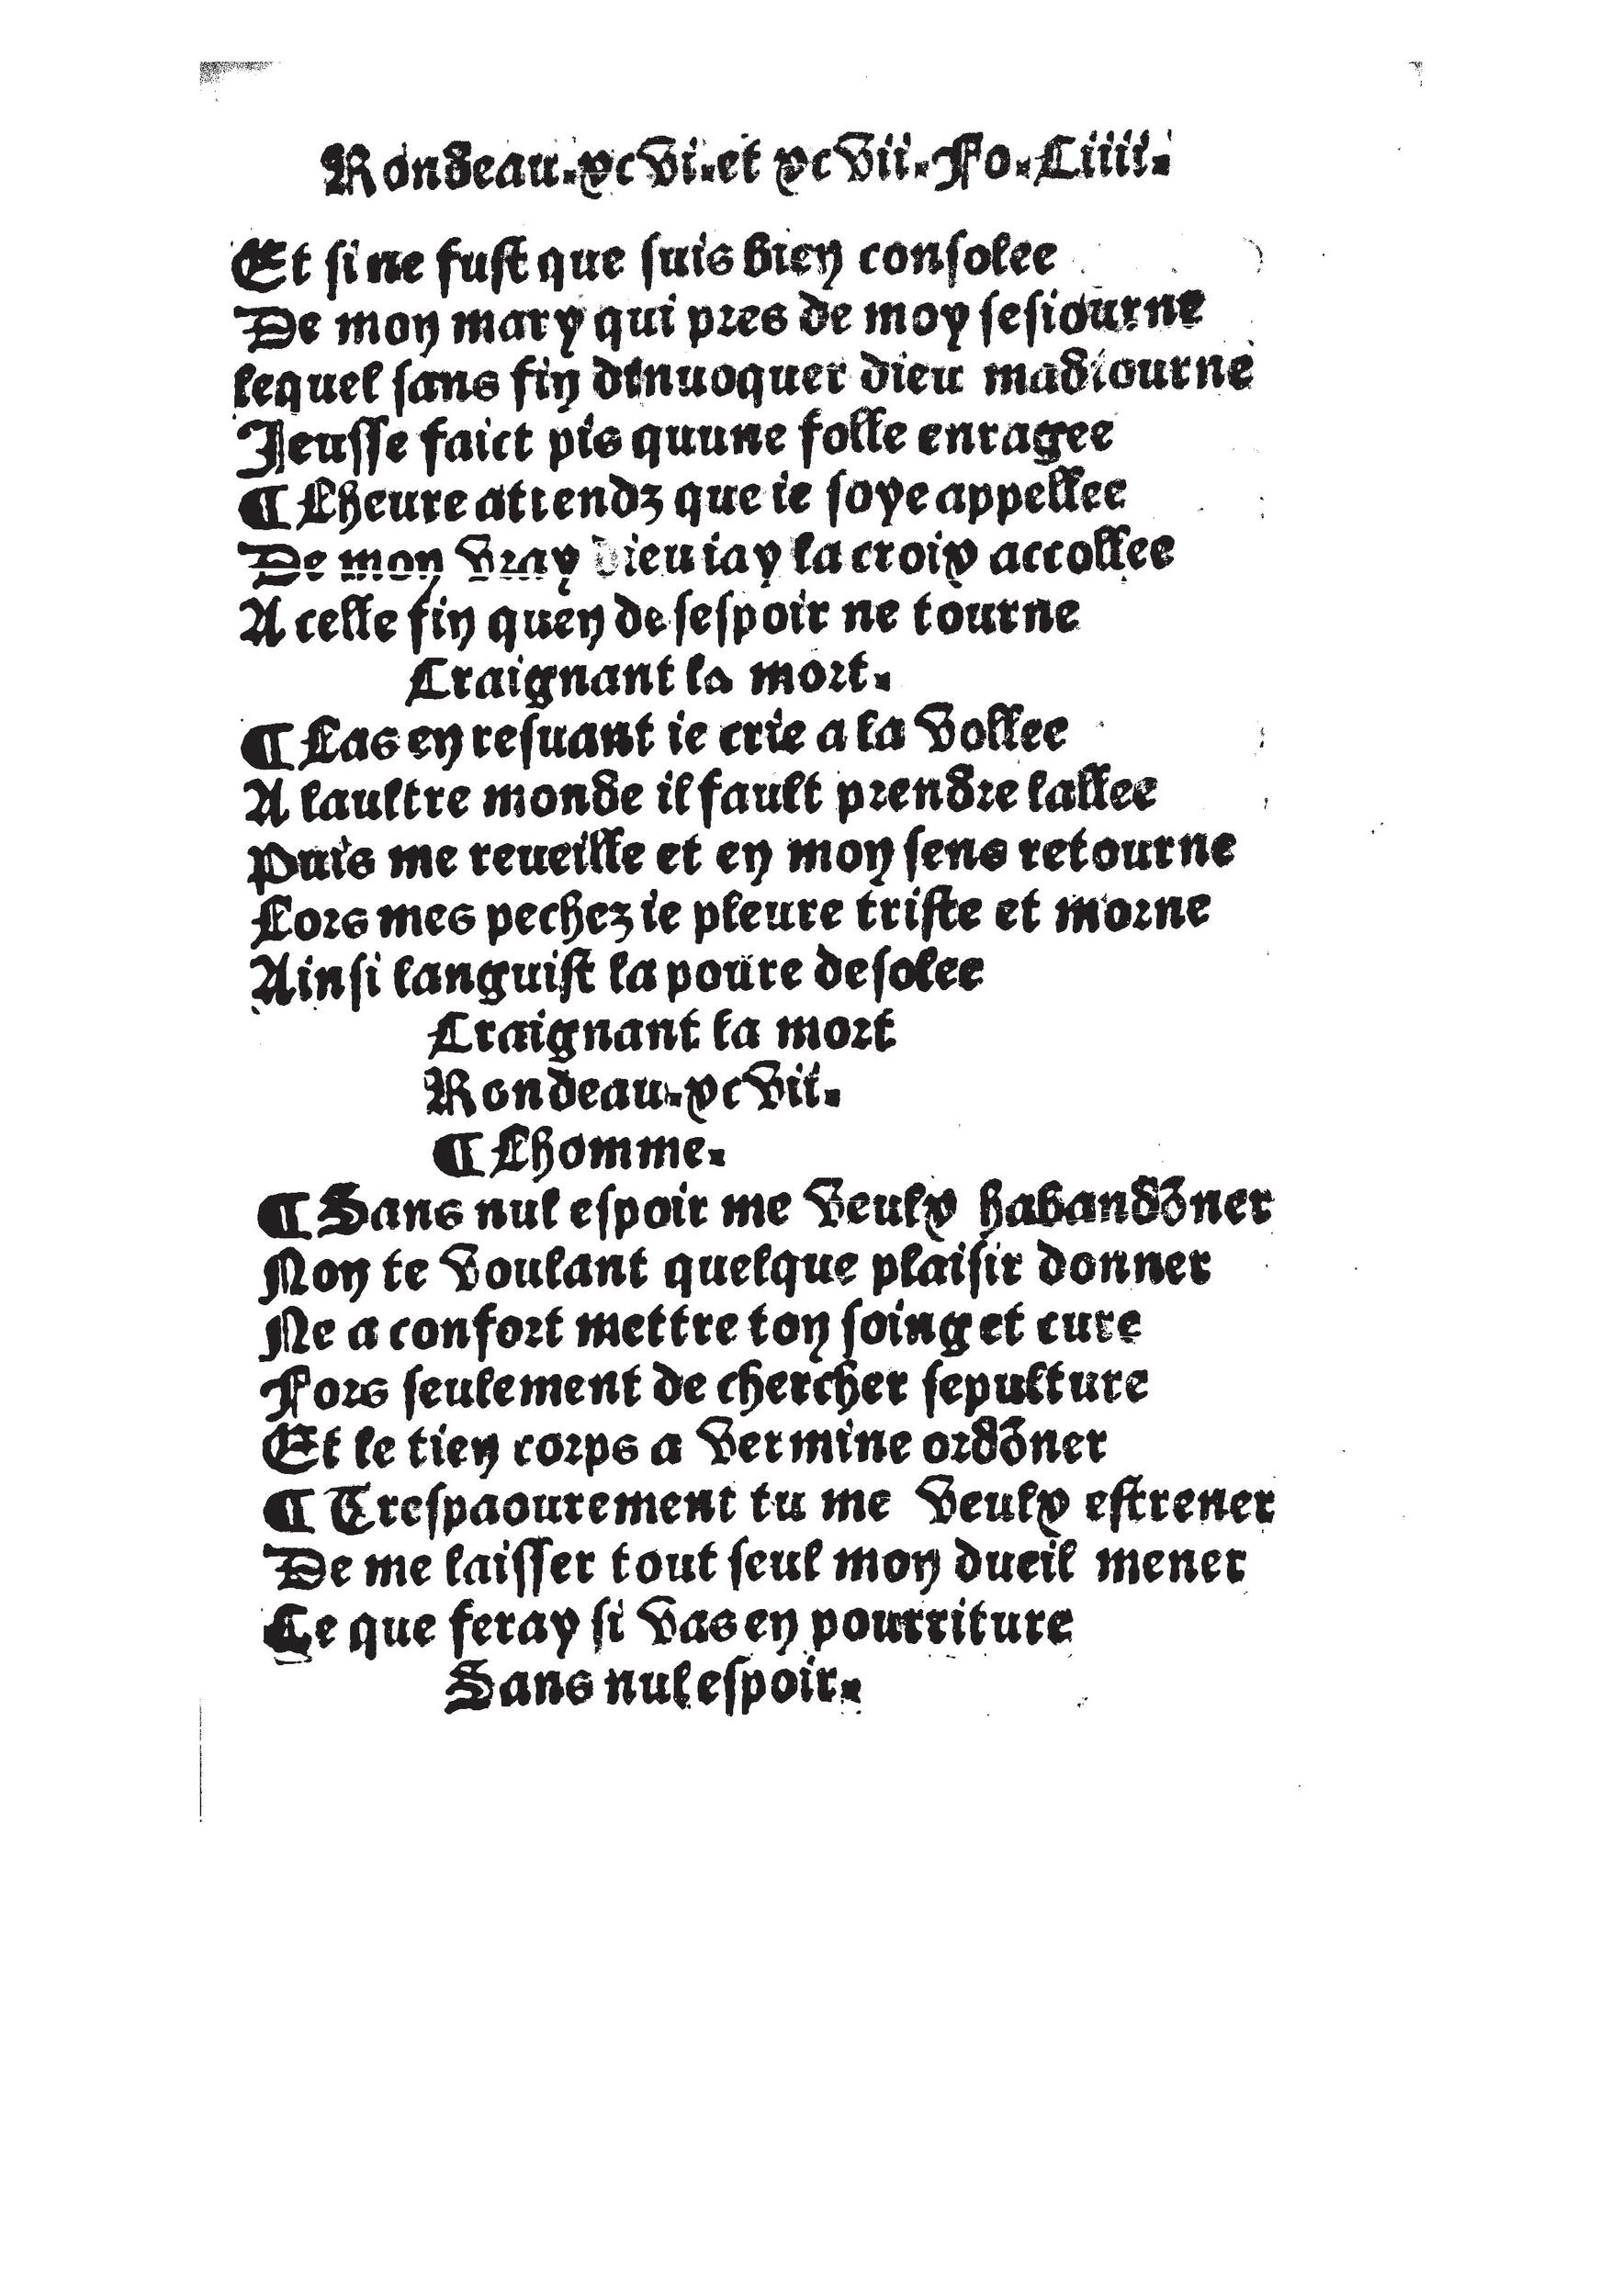 Rondeau.xcvi.et xcvii.Fo.Ciiii.
Et si ne fust que suis bien consolee
De mon mary qui pres de moy sesiourne
lequel sans fin dinuoquer dieu madiourne
Jeusse faict pis quune folle enragee
¶ Lheure attendz que ie soye appellee
De mon vray dieu iay la croix accollee
A celle fin quen desespoir ne tourne
Craignant la mort.
¶ Las en resuant ie crie a la vollee
A laultre monde il fault prendre lallee
Puis me reueille et en mon sens retourne
Lors mes pechez ie pleure triste et morne
Ainsi languist la poure desolee
Craignant la mort
Rondeau.xcvii.
¶ Lhomme.
¶ Sans nul espoir me veulx habandōner
Non te voulant quelque plaisir donner
Ne a confort mettre ton soing et cure
Fors seulement de chercher sepulture
Et le tien corps a vermine ordōner
¶ Trespaourement tu me veulx estrener
De me laisser tout seul mon dueil mener
Ce que feray si vas en pourriture
Sans nul espoir.